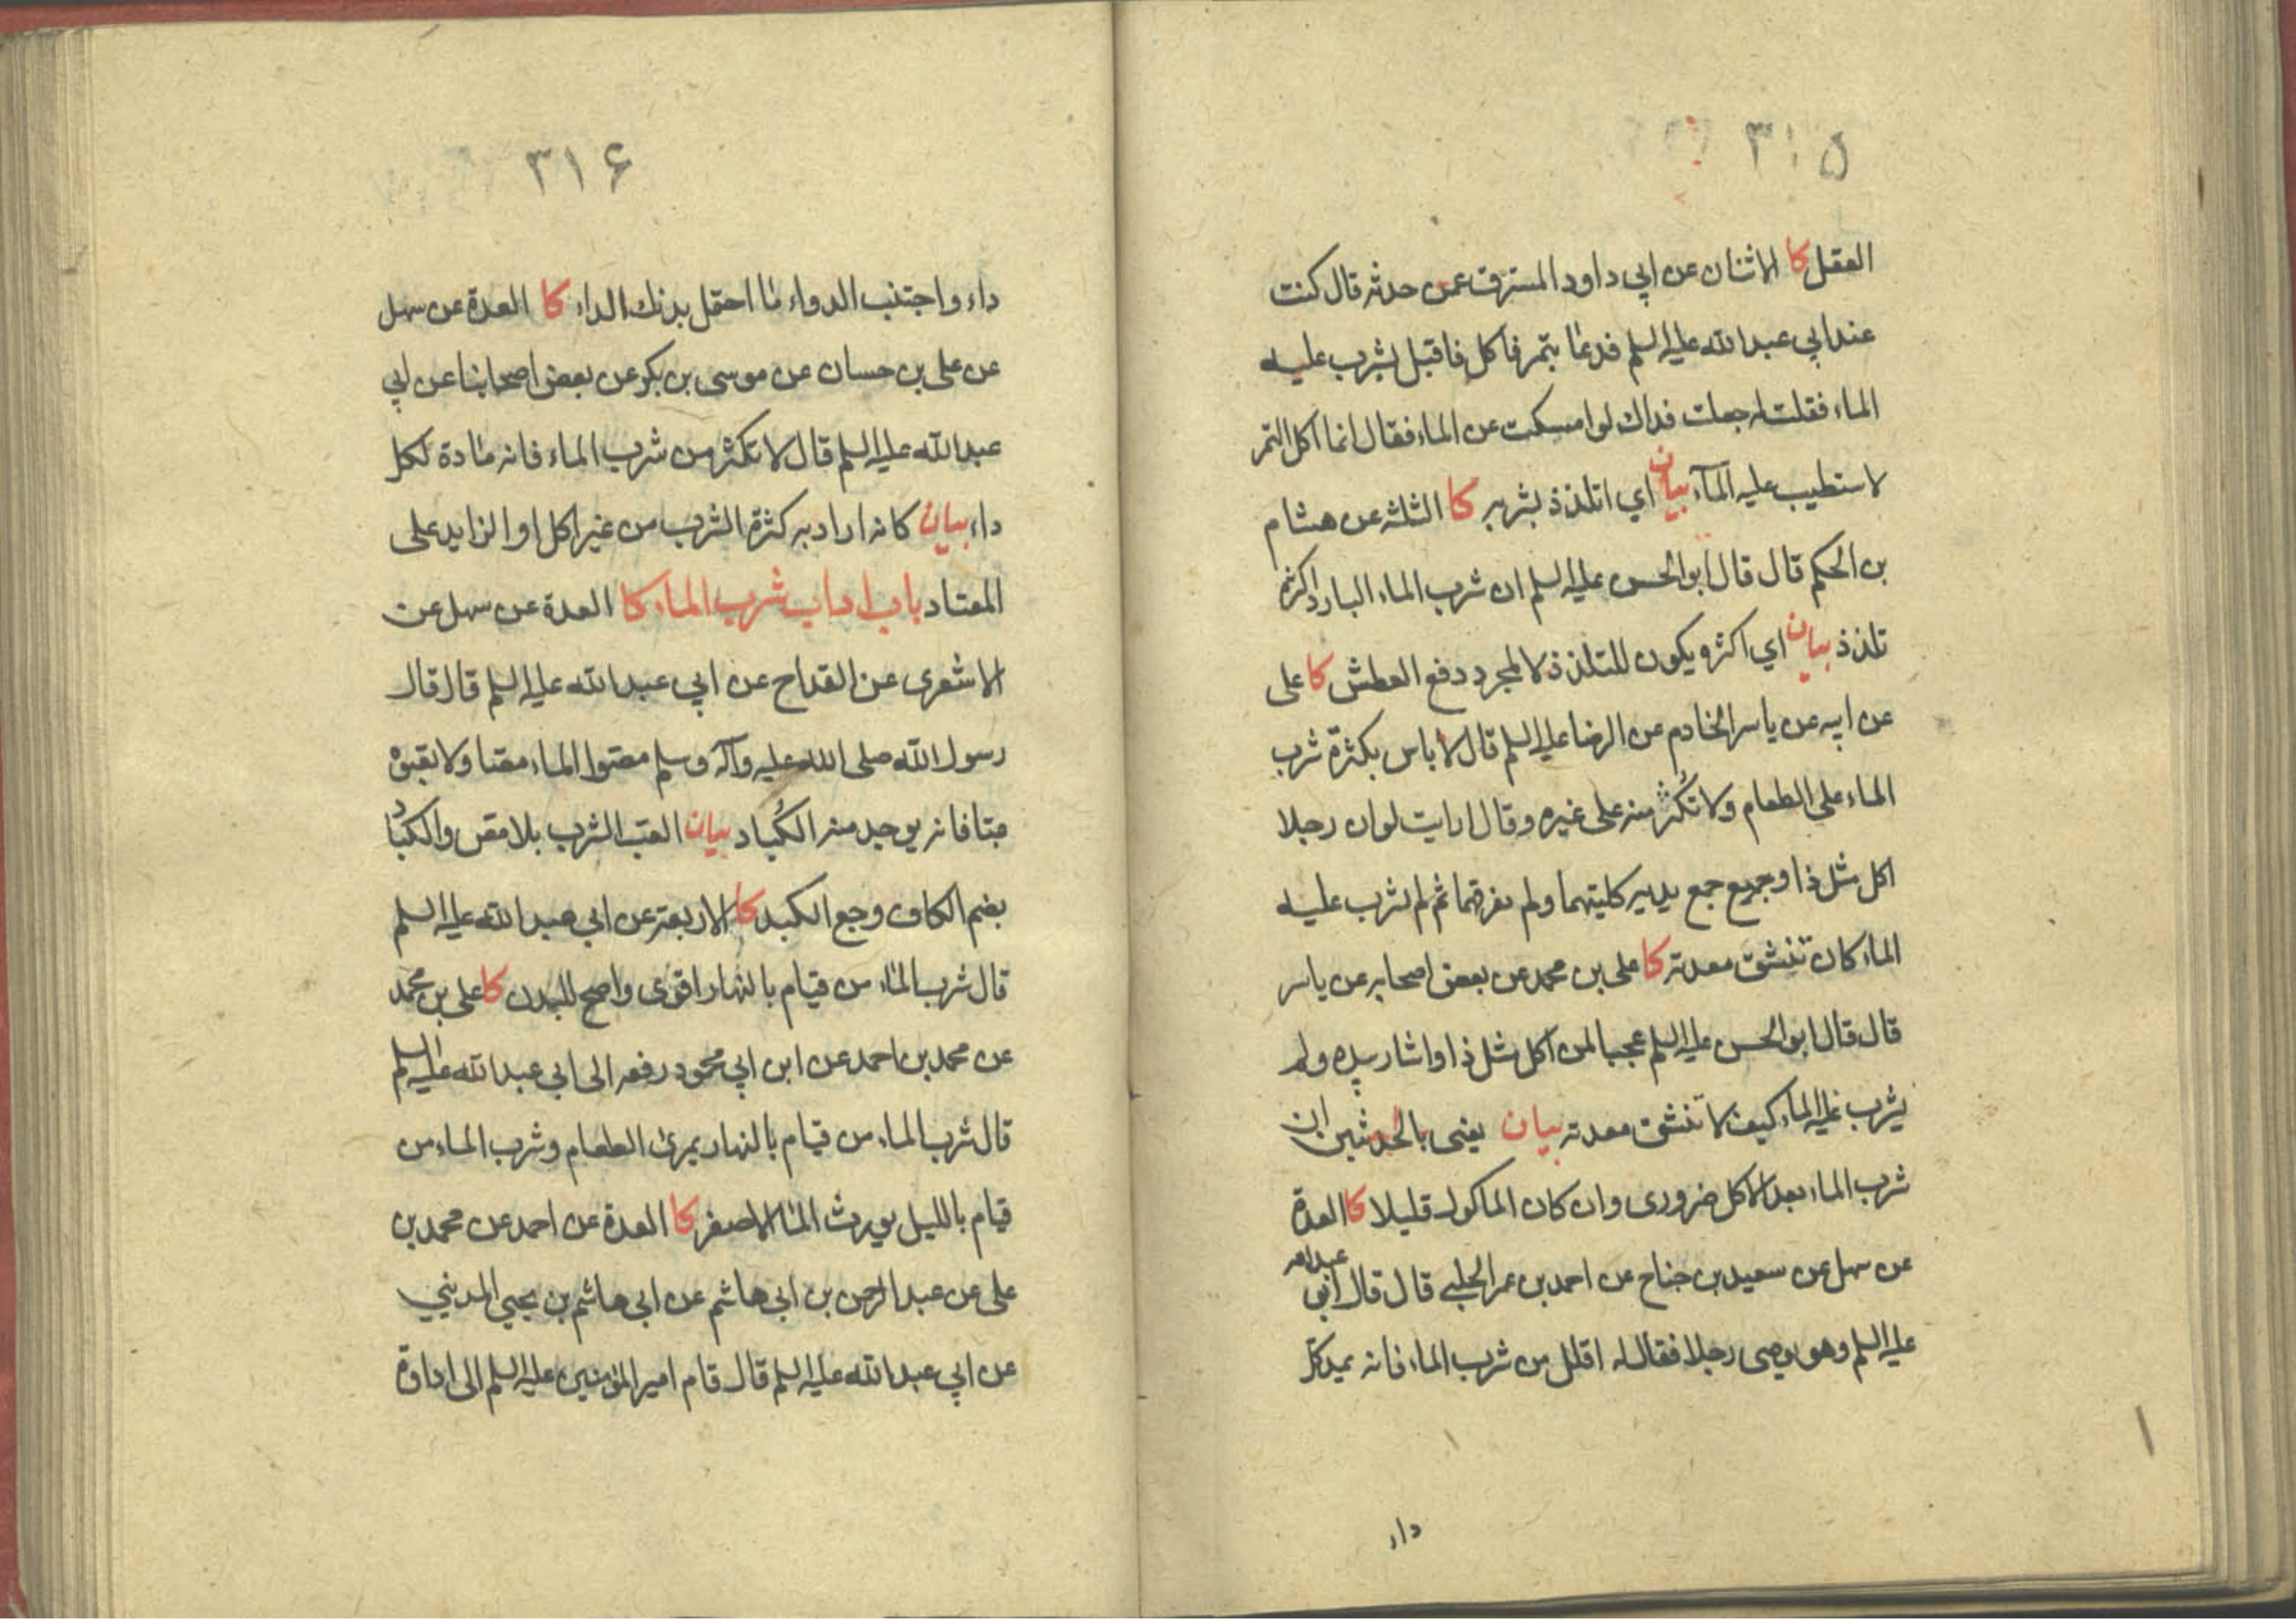 ٣١۵
العقل كا الاثنان عن ابي داود المسترق عمن حدثه قال كنت
عند ابي عبد الله عليه السلم فدعا بتمر فاكل فاقبل يشرب عليه
الماء فقلت له جعلت فداك لو امسكت عن الماء فقال انما اكل التمر
لاستطيب عليه المآء بيان اي اتلذذ بشربه كا الثلثه عن هشام
بن الحكم قال قال ابو الحسن عليه السلم ان شرب الماء البارد اكثره
تلذذ بيان اي اكثره يكون للتلذذ لا لمجرد دفع العطش كا على
عن ابيه عن ياسر الخادم عن الرضا عليه السلم قال لا باس بكثرة شرب
الماء على الطعام ولا تُكثر منه على غيره وقال ارايت لو ان رجلا
اكل مثل ذا وجميع جمع يديه كليتهما ولم يفرقهما ثم لم يشرب عليه
الماء كان تنشق معدته كا على بن محمد عن بعض اصحابه عن ياسر
قال قال ابو الحسن عليه السلم عجبا لمن اكل مثل ذا واشار بيده ولم
يشرب عليه الماء كيف لا تنشق معدته بيان يعنى بالحديثين ان
شرب الماء بعد الاكل ضرورى وان كان الماكول قليلا كا العدة
عن سهل عن سعيد بن جناح عن احمد بن عمر الحلبي قال قال ابو عبد الله
عليه السلم وهو يوصى رجلا فقال له اقلل من شرب الماء فانه يمد كل
داء
٣١۶
داء واجتنب الدواء ما احتمل بدنك الداء كا العدة عن سهل
عن على بن حسان عن موسى بن بكر عن بعض اصحابنا عن ابي
عبد الله عليه السلم قال لا تكثر من شرب الماء فانه مادة لكل
داء بيان كانه اراد به كثرة الشرب من غير اكل او الزايد على
المعتاد باب اداب شرب الماء كا العدة عن سهل عن
الاشعرى عن القداح عن ابي عبد الله عليه السلم قال قال
رسول الله صلى الله عليه وآله وسلم مصّوا الماء مصّا ولا تعبّوه
عبّا فانه يوجد منه الكُباد بيان العبّ الشرب بلا مصّ والكُباد
بضم الكاف وجع الكبد كا الاربعة عن ابي عبد الله عليه السلم
قال شرب الماء من قيام بالنهار اقوى واصح للبدن كا على بن محمد
عن محمد بن احمد عن ابن ابي محمود رفعه الى ابي عبد الله عليه السلم
قال شرب الماء من قيام بالنهار يمرئ الطعام وشرب الماء من
قيام بالليل يورث الماء الاصفر كا العدة عن احمد عن محمد بن
على عن عبد الرحمن بن ابي هاشم عن ابي هاشم بن يحيي المديني
عن ابي عبد الله عليه السلم قال قام امير المؤمنين عليه السلم الى اداوة